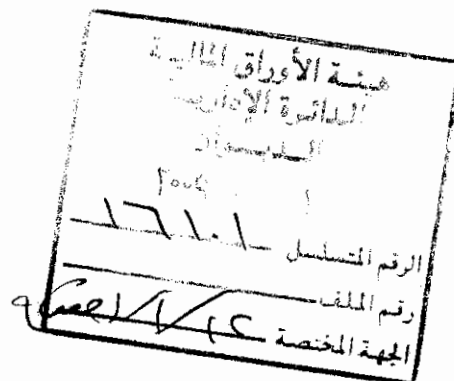 هيئة الأوراق المالية
الدائرة الإدارية
الديوان
الرقم المتسلسل ١٦١٠١
رقم الملف
الجهة المختصة